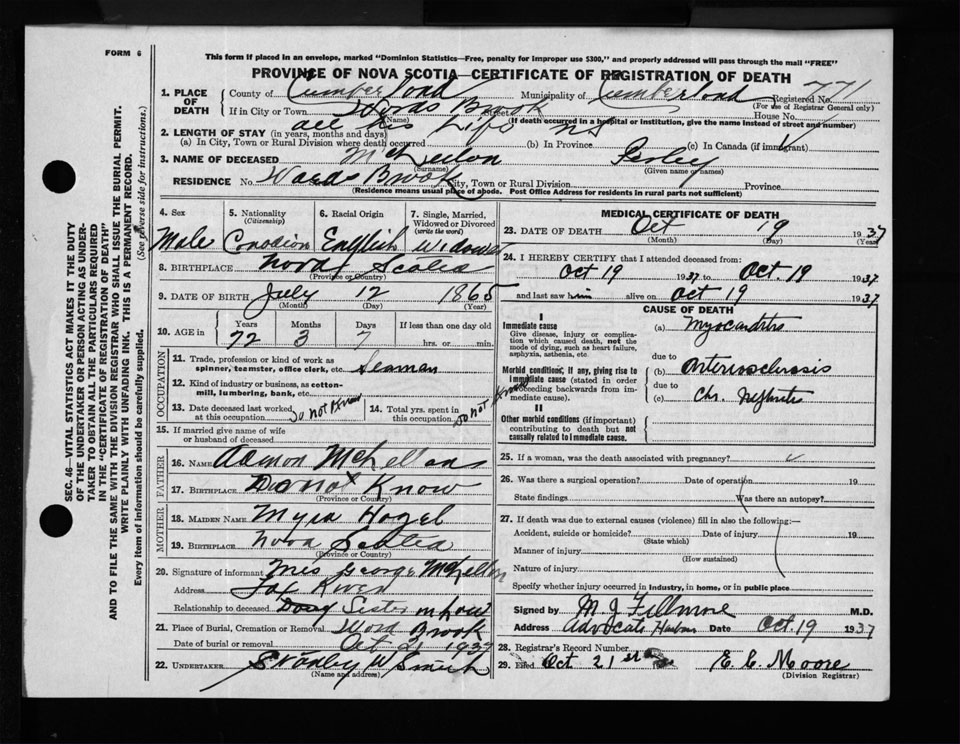 FORM 6
This form if placed in an envelope, marked "Dominion Statistics—Free, penalty for improper use $300," and properly addressed will pass through the mail "FREE"
PROVINCE OF NOVA SCOTIA—CERTIFICATE OF REGISTRATION OF DEATH
SEC. 46—VITAL STATISTICS ACT MAKES IT THE DUTY
OF THE UNDERTAKER OR PERSON ACTING AS UNDER-
TAKER TO OBTAIN ALL THE PARTICULARS REQUIRED
IN THE "CERTIFICATE OF REGISTRATION OF DEATH"
AND TO FILE THE SAME WITH THE DIVISION REGISTRAR WHO SHALL ISSUE THE BURIAL PERMIT.
WRITE PLAINLY WITH UNFADING INK. THIS IS A PERMANENT RECORD.
Every item of information should be carefully supplied. (See reverse side for instructions.)
1. PLACE OF DEATH County of Cumberland Municipality of Cumberland Registered No. 771
(For use of Registrar General only)
If in City or Town Wards Brook Street House No.
(Name) (If death occurred in a hospital or institution, give the name instead of street and number)
2. LENGTH OF STAY (in years, months and days) all his Life NS
(a) In City, Town or Rural Division where death occurred (b) In Province (c) In Canada (if immigrant)
3. NAME OF DECEASED Perley
(Surname) (Given name or names)
RESIDENCE No. Wards Brook City, Town or Rural Division Province
(Residence means usual place of abode. Post Office Address for residents in rural parts not sufficient)
4. Sex 5. Nationality (Citizenship) 6. Racial Origin 7. Single, Married, Widowed or Divorced (write the word)
Male Canadian English widower
8. BIRTHPLACE Nova Scotia
(Province or Country)
9. DATE OF BIRTH July 12 1865
(Month) (Day) (Year)
10. AGE IN Years Months Days If less than one day old
72 3 7 hrs. or min.
OCCUPATION
11. Trade, profession or kind of work as spinner, teamster, office clerk, etc. Seaman
12. Kind of industry or business, as cotton-mill, lumbering, bank, etc.
13. Date deceased last worked at this occupation Do not Know 14. Total yrs. spent in this occupation Do not Know
15. If married give name of wife or husband of deceased
FATHER
16. NAME
17. BIRTHPLACE Do not Know
(Province or Country)
MOTHER
18. MAIDEN NAME Myra
19. BIRTHPLACE Nova Scotia
(Province or Country)
20. Signature of informant Mrs George
Address Fox River
Relationship to deceased Sister in Law
21. Place of Burial, Cremation or Removal Ward Brook
Date of burial or removal Oct 21 1937
22. UNDERTAKER Stanley W Smith
(Name and address)
MEDICAL CERTIFICATE OF DEATH
23. DATE OF DEATH Oct 19 1937
(Month) (Day) (Year)
24. I HEREBY CERTIFY that I attended deceased from:
Oct 19 1937 to Oct. 19 1937
and last saw him alive on Oct 19 1937
CAUSE OF DEATH
I
Immediate cause
Give disease, injury or complication which caused death, not the mode of dying, such as heart failure, asphyxia, asthenia, etc.
(a) Myocarditis
due to
Morbid conditions, if any, giving rise to immediate cause (stated in order proceeding backwards from immediate cause).
(b) Arteriosclerosis
due to
(c) Chr. Nephritis
II
Other morbid conditions (if important) contributing to death but not causally related to immediate cause.
25. If a woman, was the death associated with pregnancy?
26. Was there a surgical operation? Date of operation 19
State findings Was there an autopsy?
27. If death was due to external causes (violence) fill in also the following:—
Accident, suicide or homicide? Date of injury 19
(State which)
Manner of injury
(How sustained)
Nature of injury
Specify whether injury occurred in industry, in home, or in public place
Signed by M. J. Fillmore M.D.
Address Advocate Harbour Date Oct. 19 1937
28. Registrar's Record No.
29. Filed Oct 21st E. C. Moore
(Division Registrar)